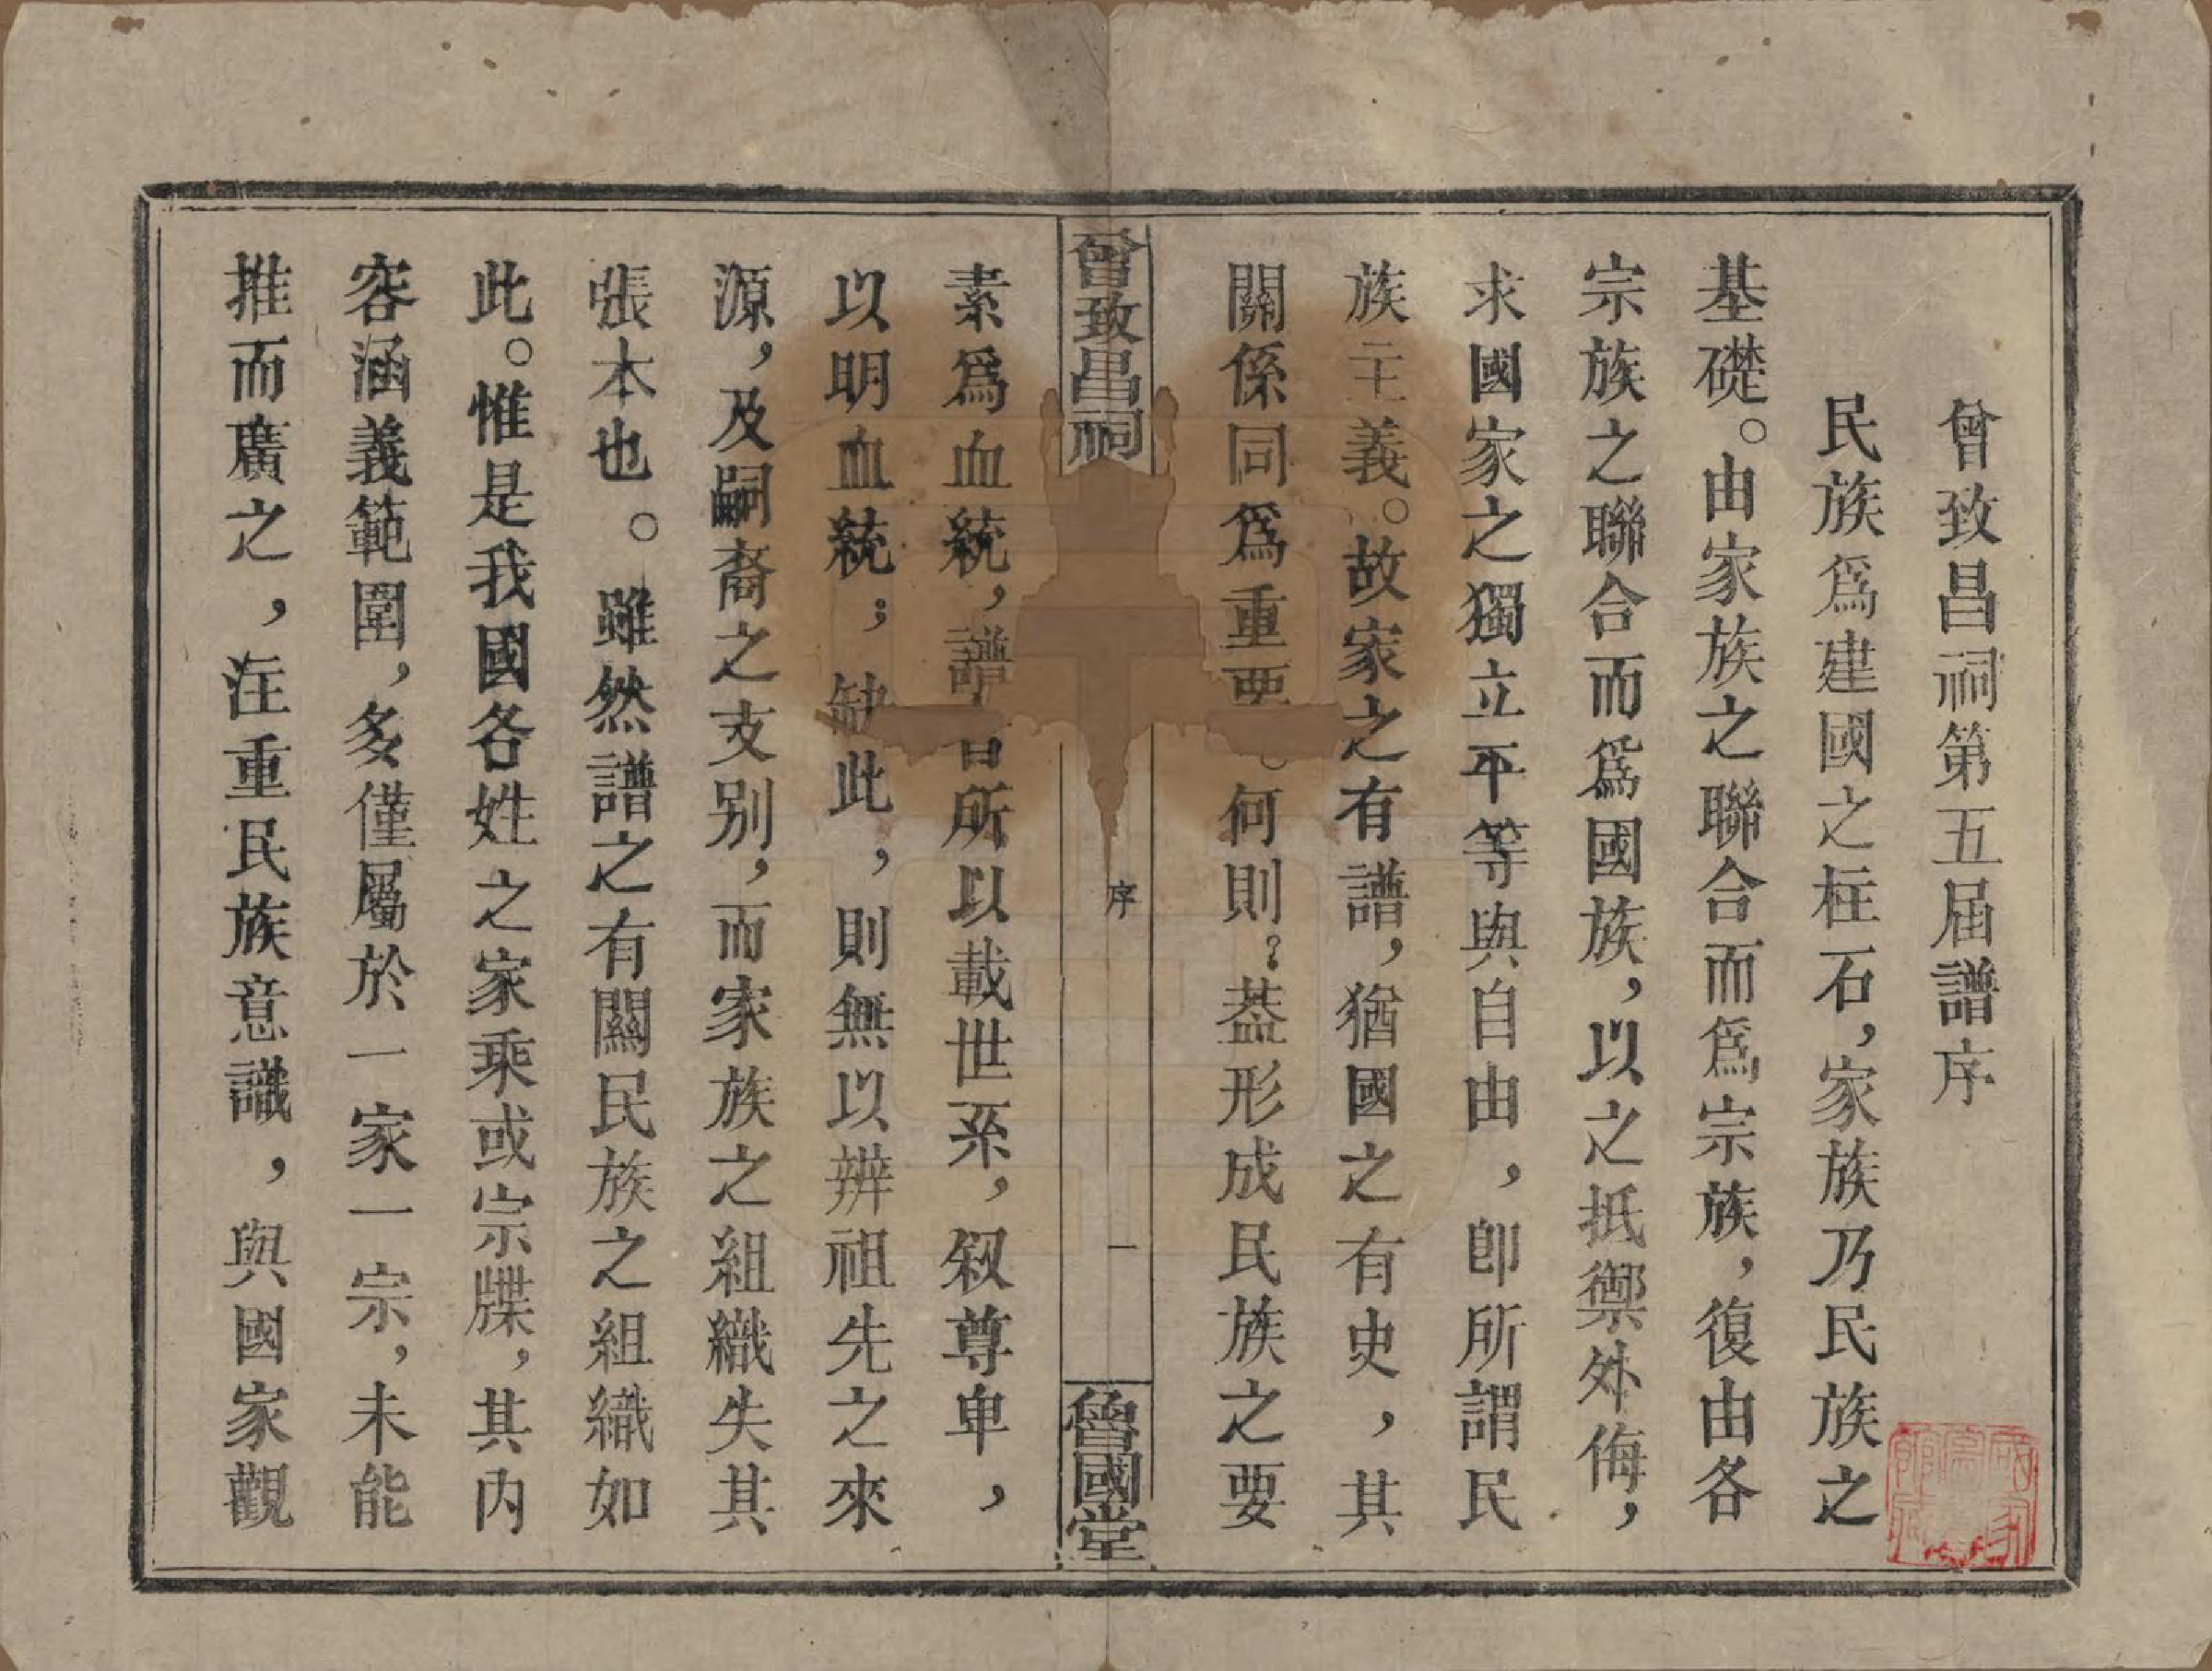 曾致昌祠第五屆譜序
民族爲建國之柱石，家族乃民族之
基礎。由家族之聯合而爲宗族，復由各
宗族之聯合而爲國族，以之抵禦外侮，
求國家之獨立平等與自由，卽所謂民
族主義。故家之有譜，猶國之有史，其
關係同爲重要。何則？葢形成民族之要
曾致昌祠
序
一
魯國堂
素爲血統，譜者所以載世系，叙尊卑，
以明血統；缺此，則無以辨祖先之來
源，及嗣裔之支別，而家族之組織失其
張本也。雖然譜之有關民族之組織如
此。惟是我國各姓之家乘或宗牒，其內
容涵義範圍，多僅屬於一家一宗，未能
推而廣之，注重民族意識，與國家觀